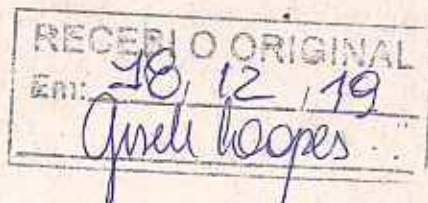 RECEBI O ORIGINAL
Em: 18, 12, 19
Gisele Loopes